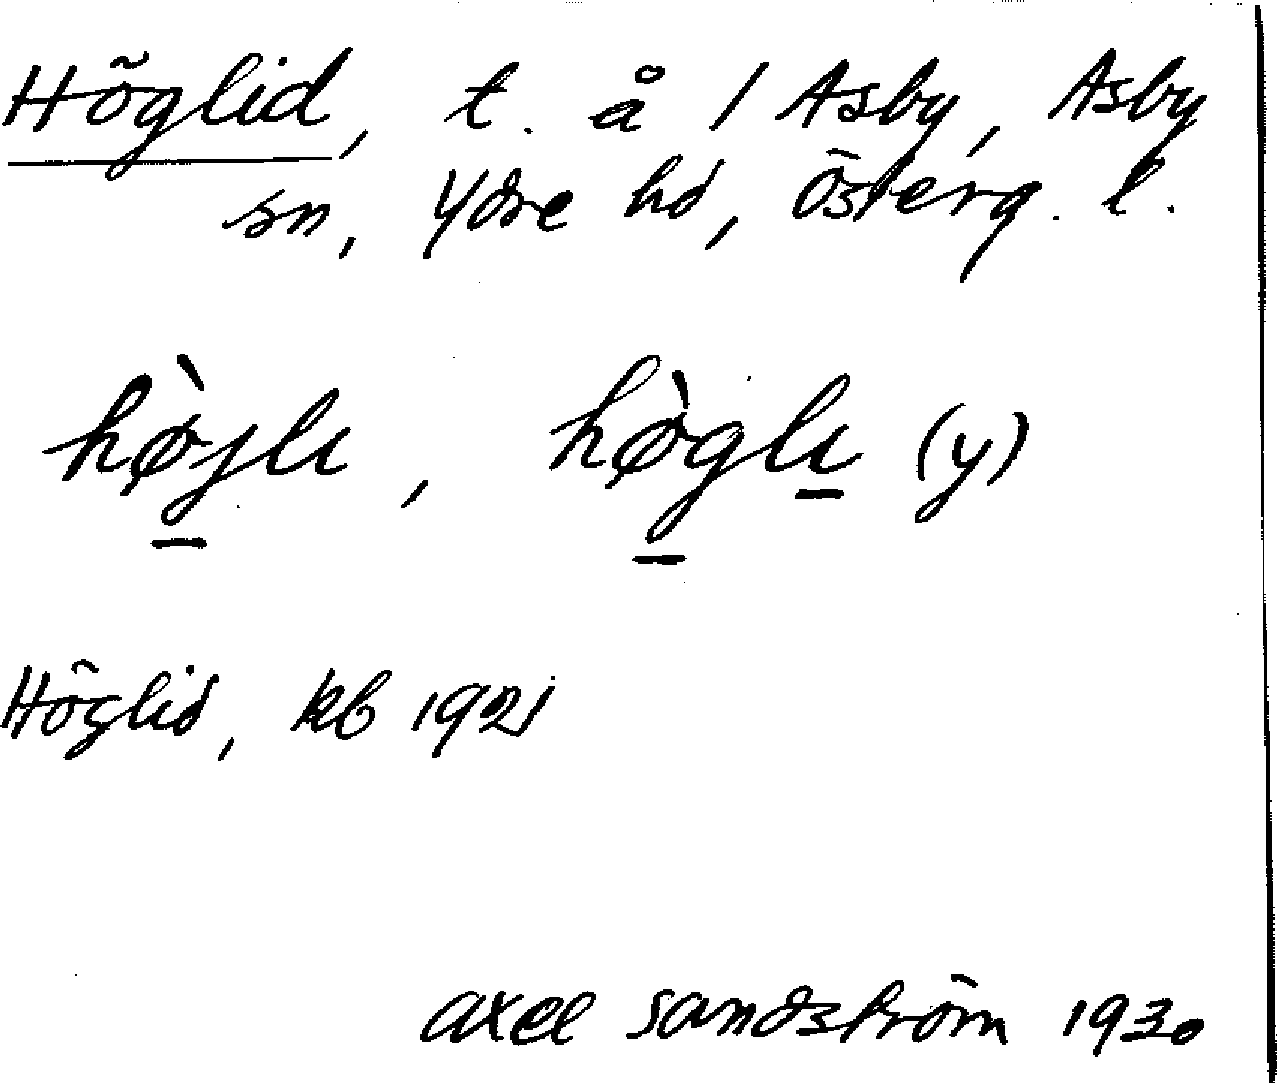 Höglid, t. å 1 Asby, Asby
sn, Ydre hd, Österg. l.
hø̀jlı, hø̀glı (y)
Höglid, kb 1921
Axel Sandström 1930